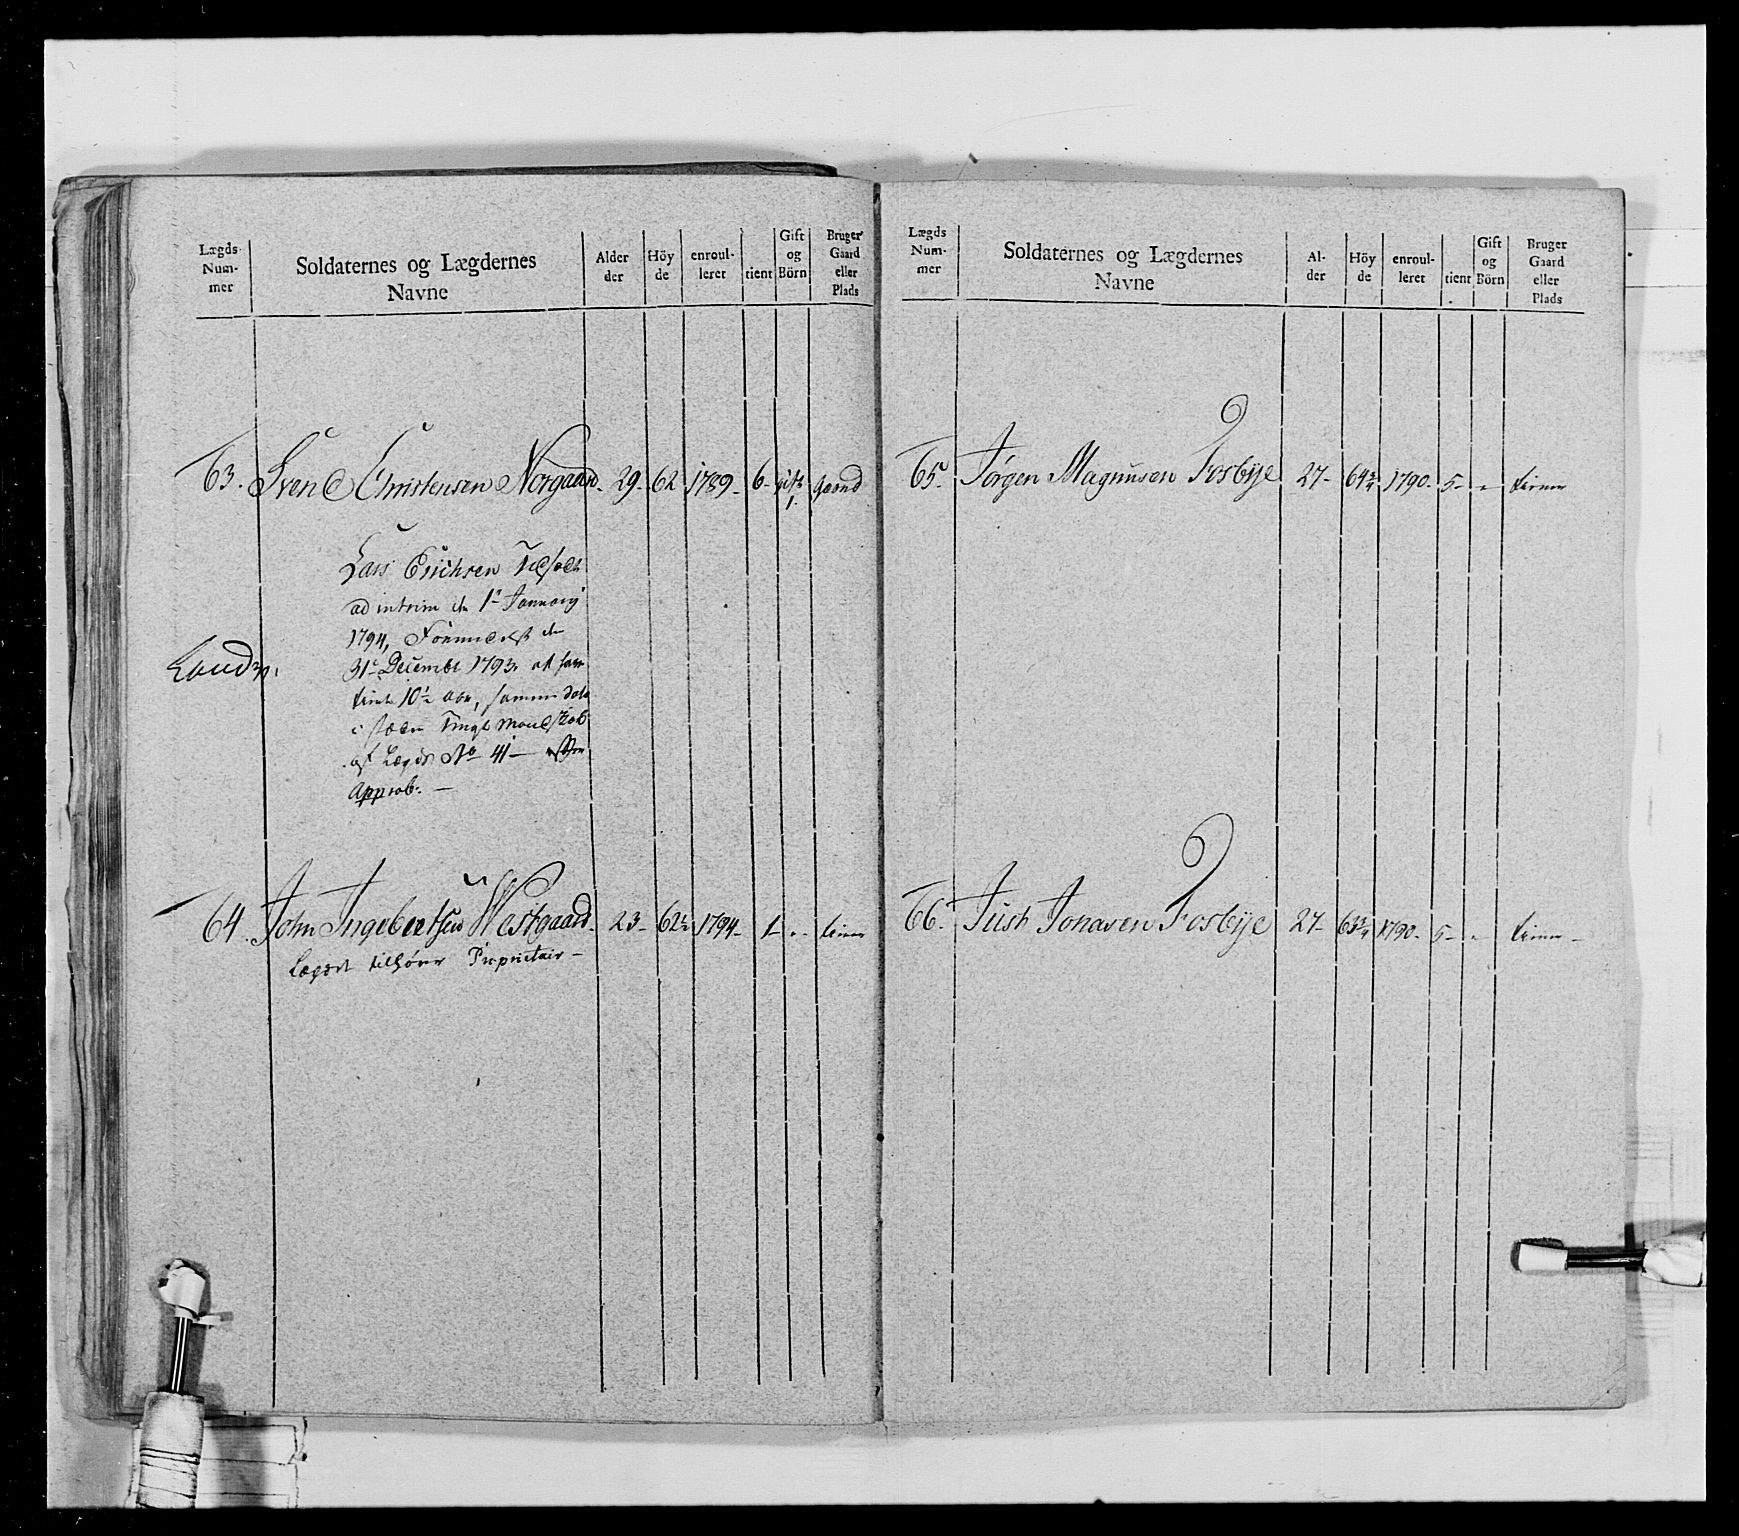 Lægds Num- mer | Soldaternes og Lægdernes Navne | Alder der | Höy de | enroul- leret | tient | Gift og Börn | Bruger Gaard eller Plads
63. Svend Christensen Norgaard. 29. 62 1789. 6. gift 1. Gaard
Lars Erichsen
ad interim den 1te Januarij
1794, den
Landv:
31te Decembr 1793 at have
tient 10½ Aar, samme dato
i stæden Mandskab
af Lægd No 41 —
Approb. —
64. John Ingebretsen Westgaard. 23 62½ 1794. 1 " tiener
Lægdet tilhører Proprietair —
Lægds Num- mer | Soldaternes og Lægdernes Navne | Al- der | Höy de | enroul- leret | tient | Gift og Börn | Bruger Gaard eller Plads
65. Jørgen Magnusen Fosbye 27 64¾ 1790. 5 " tiener
66. Just Jonasen Fosbye 27 63¾ 1790. 5 " tiener —